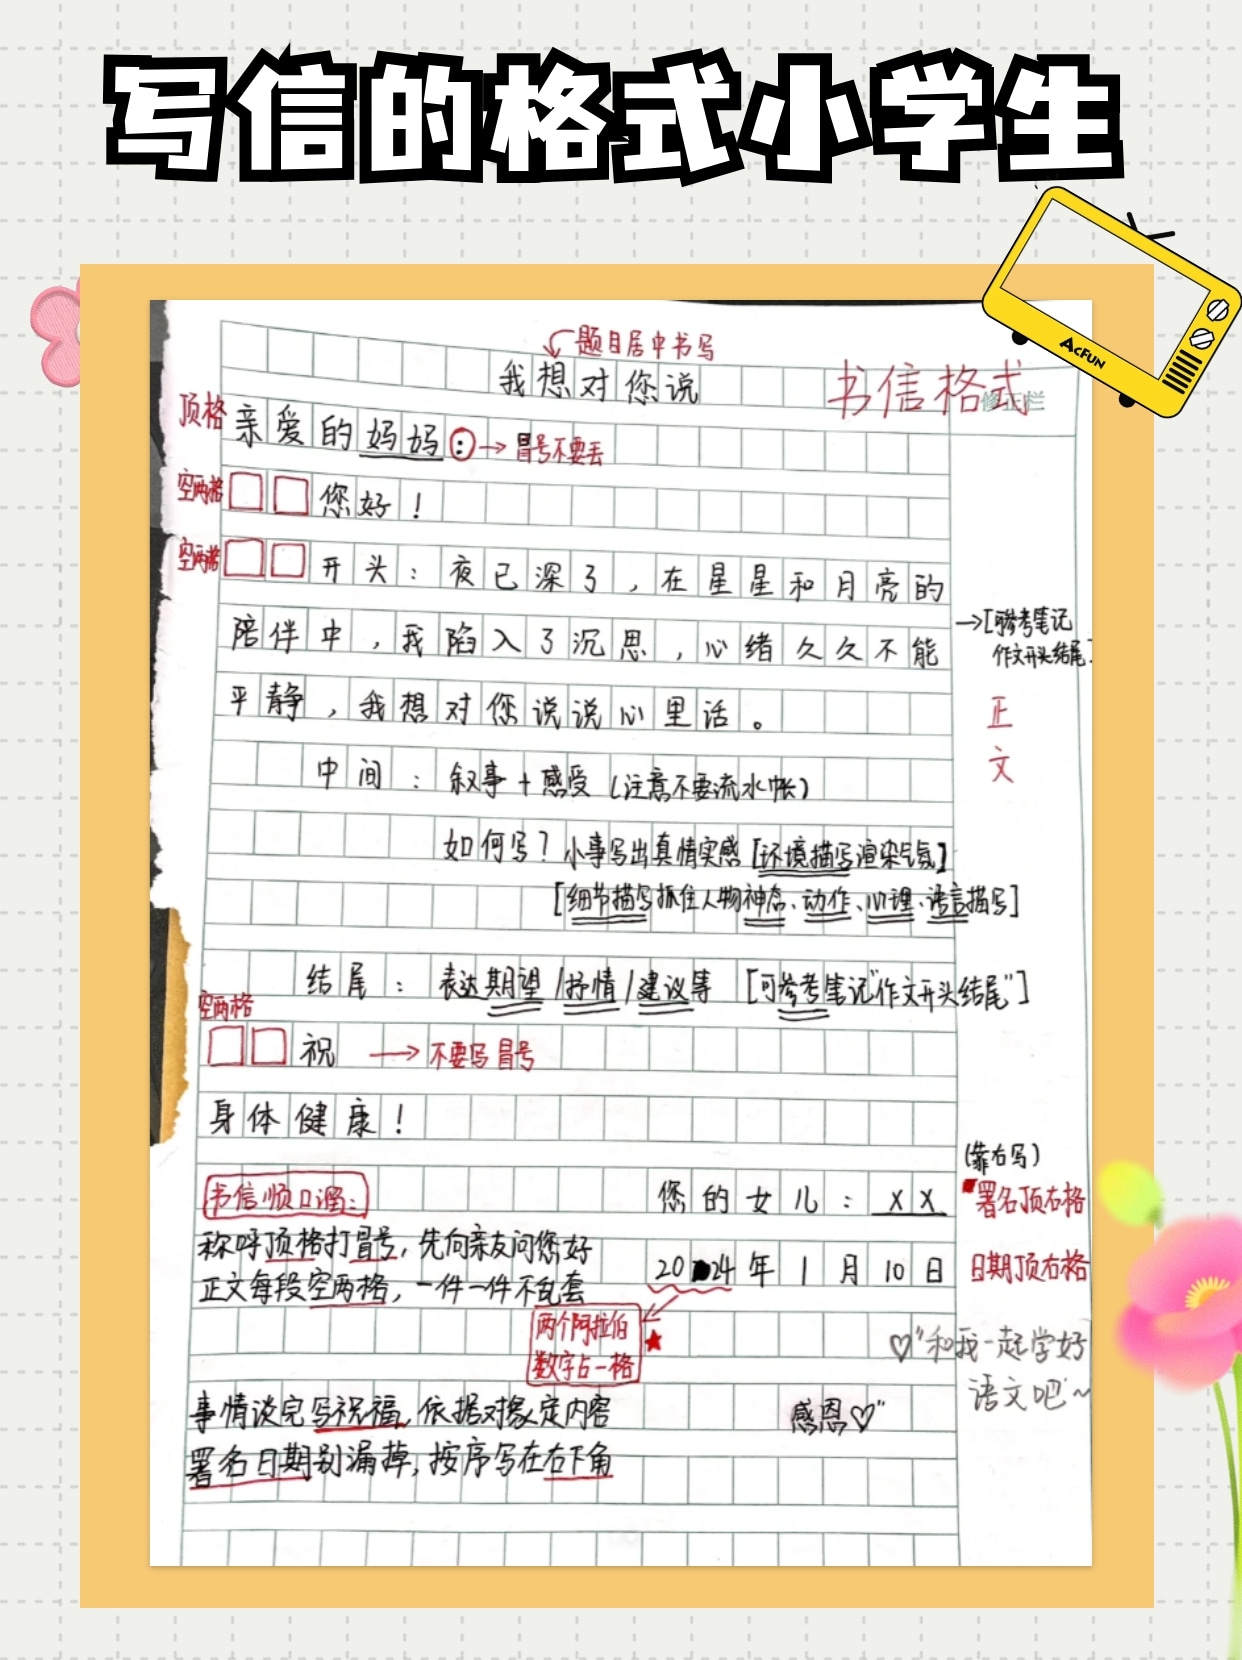 写信的格式小学生
ACFUN
题目居中书写
我想对您说
书信格式
顶格 亲爱的妈妈：→冒号不要丢
空两格 您好！
空两格 开头：夜已深了，在星星和月亮的
陪伴中，我陷入了沉思，心绪久久不能
→[可参考笔记
作文开头结尾]
平静，我想对您说说心里话。
正文
中间：叙事+感受（注意不要流水帐）
如何写？小事写出真情实感[环境描写渲染气氛]
[细节描写抓住人物神态、动作、心理、语言描写]
结尾：表达期望/抒情/建议等 [可参考笔记“作文开头结尾”]
空两格
祝 →不要写冒号
身体健康！
(靠右写)
您的女儿：XX 署名顶右格
2024年1月10日 日期顶右格
两个阿拉伯
数字占一格
书信顺口溜：
称呼顶格打冒号，先向亲友问您好
正文每段空两格，一件一件不乱套
事情谈完写祝福，依据对象定内容
署名日期别漏掉，按序写在右下角
♡“和我一起学好
语文吧~
感恩♡”